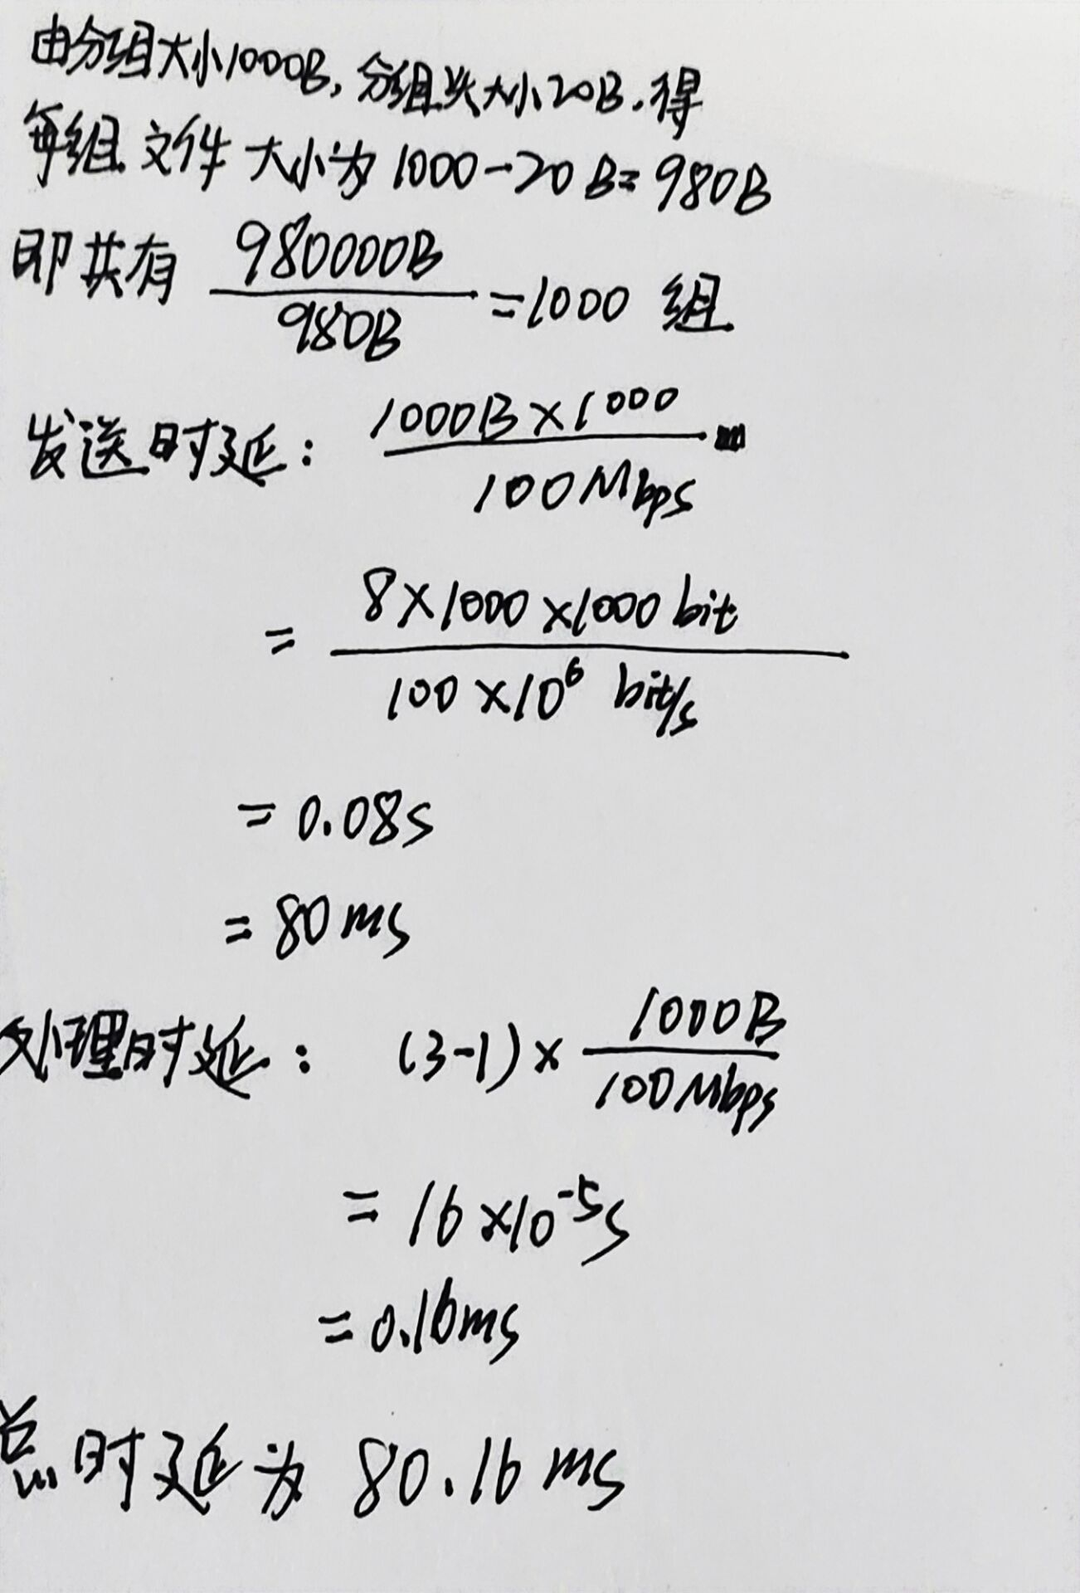 由分组大小1000B,分组头大小20B.得
每组文件大小为1000-20B=980B
即共有 980000B/980B=1000 组
发送时延: 1000B×1000/100Mbps
= 8×1000×1000bit/100×10⁶ bit/s
=0.08s
=80ms
处理时延: (3-1)×1000B/100Mbps
=16×10⁻⁵s
=0.16ms
总时延为 80.16ms